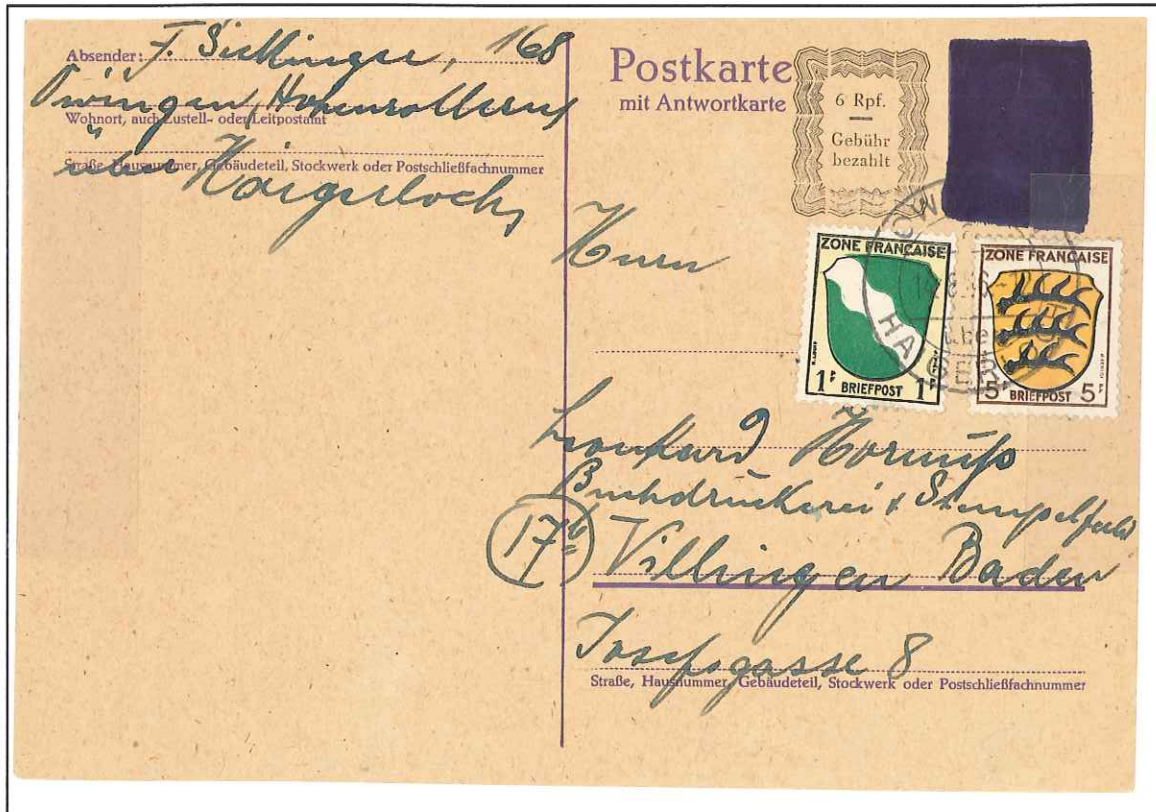 Absender: F. Sickinger, 168
Owingen, Hohenzollern
Wohnort, auch Zustell- oder Leitpostamt
über Haigerloch,
Straße, Hausnummer, Gebäudeteil, Stockwerk oder Postschließfachnummer
Postkarte
mit Antwortkarte
6 Rpf.
Gebühr
bezahlt
ZONE FRANÇAISE
1 F BRIEFPOST 1 F
ZONE FRANÇAISE
5 F BRIEFPOST 5 F
Herrn
Leonhard Hornuß
Buchdruckerei & Stempelfabr
17b Villingen Baden
Josefsgasse 8
Straße, Hausnummer, Gebäudeteil, Stockwerk oder Postschließfachnummer